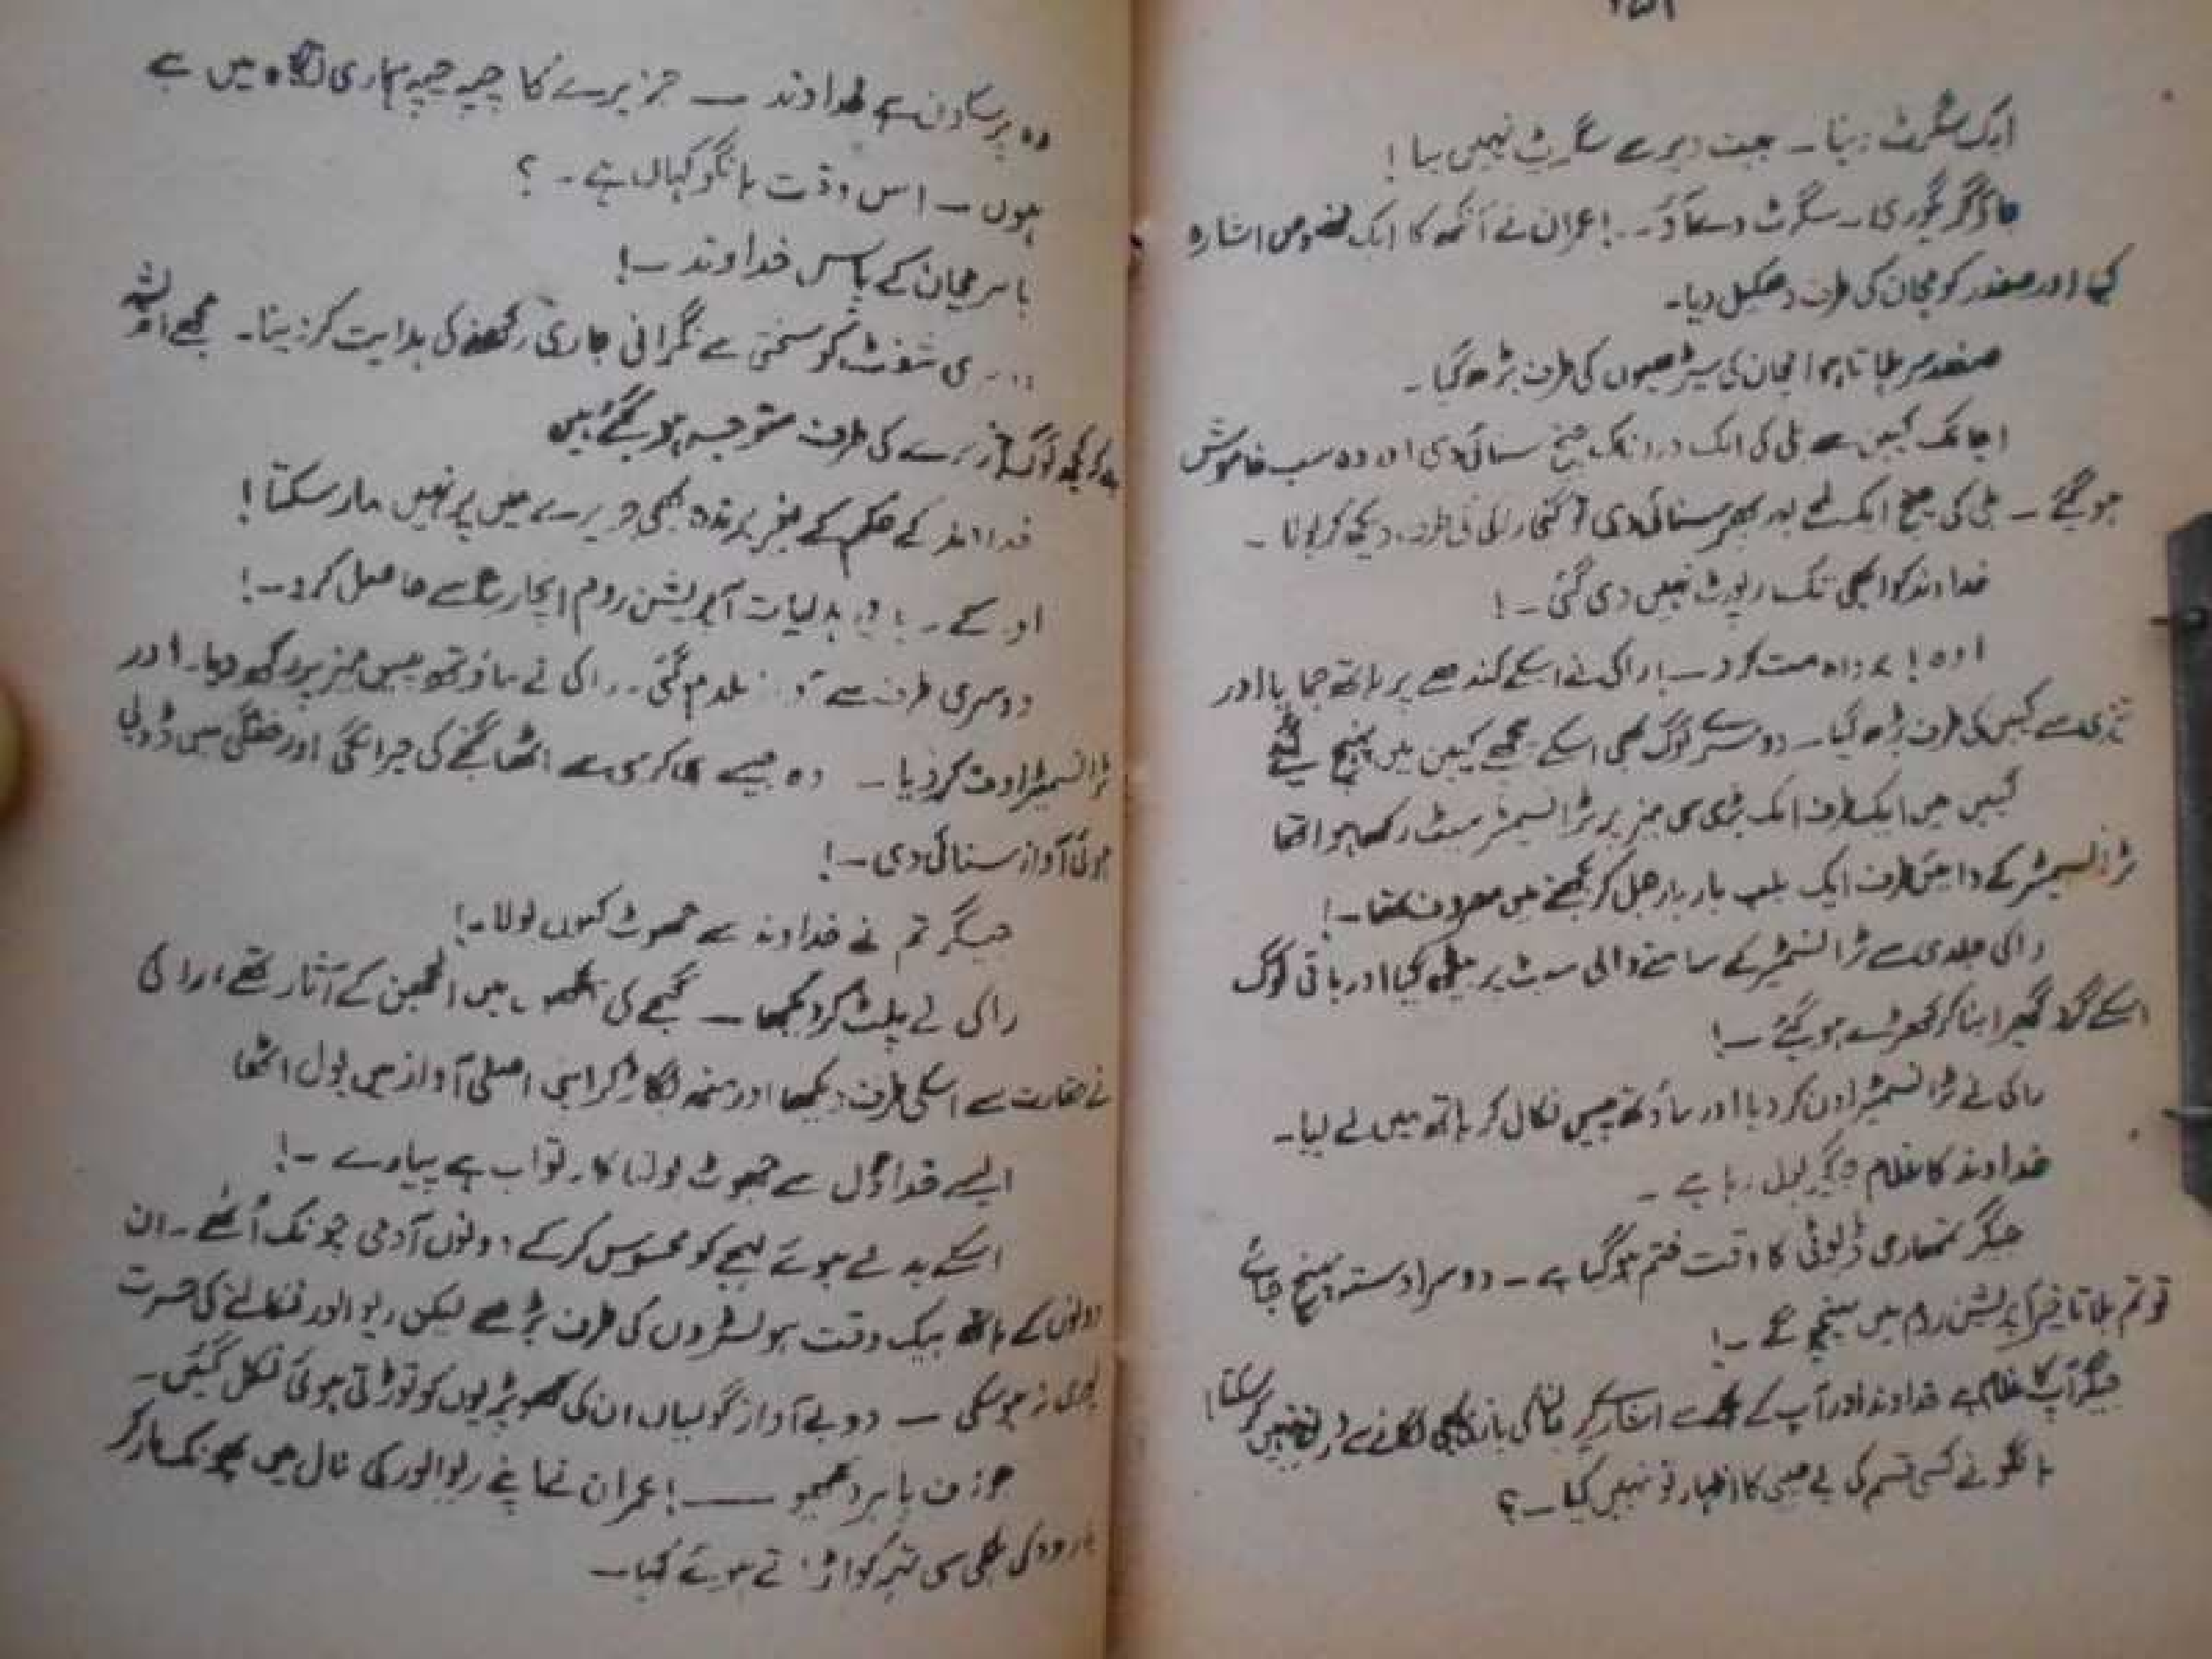 ایک سگرٹ دینا ۔ بہت دیر سے سگریٹ نہیں پیا !
جاؤ گریگوری ۔ سگرٹ دے آؤ ۔ ! عمران نے آنکھ کا ایک مخصوص اشارہ
کیا اور صفدر کو مچان کی طرف دھکیل دیا ۔
صفدر سر ہلاتا ہوا مچان کی سیڑھیوں کی طرف بڑھ گیا ۔
اچانک کیبن سے بلی کی ایک دردناک چیخ سنائی دی اور وہ سب خاموش
ہو گئے ۔ بلی کی چیخ ایک لمحے بعد پھر سنائی دی تو گنجا راکی کی طرف دیکھ کر بولا ۔
خداوند کو ابھی تک رپورٹ نہیں دی گئی ۔ !
اوہ ! پرواہ مت کرو ۔ ! راکی نے اسکے کندھے پر ہاتھ جمایا اور
تیزی سے کیبن کی طرف بڑھ گیا ۔ دوسرے لوگ بھی اسکے پیچھے کیبن میں پہنچ گئے
کیبن میں ایک طرف ایک بڑی سی میز پر ٹرانسمیٹر سیٹ رکھا ہوا تھا
ٹرانسمیٹر کے دائیں طرف ایک بلب بار بار جل کر بجھنے میں مصروف تھا ۔ !
راکی جلدی سے ٹرانسمیٹر کے سامنے والی سیٹ پر بیٹھ گیا اور باقی لوگ
اسکے گرد گھیرا بنا کر کھڑے ہو گئے ۔ !
راکی نے ٹرانسمیٹر اون کر دیا اور ماؤتھ پیس نکال کر ہاتھ میں لے لیا ۔
خداوند کا غلام جیگر بول رہا ہے ۔
جیگر تمھاری ڈیوٹی کا وقت ختم ہو گیا ہے ۔ دوسرا دستہ پہنچ جائے
تو تم بلا تاخیر آپریشن روم میں پہنچو گے ۔ !
جیگر آپ کا غلام ہے خداوند اور آپ کے اشارے پر جان کی بازی بھی لگانے سے دریغ نہیں کر سکتا !
مانگو نے کسی قسم کی بے چینی کا اظہار تو نہیں کیا ۔ ؟
وہ پرسکون ہے خداوند ۔ جزیرے کا چپہ چپہ ہماری نگاہ میں ہے
ہوں ۔ اس وقت مانگو کہاں ہے ۔ ؟
باہر مچان کے پاس خداوند ۔ !
شفٹ کو سختی سے نگرانی جاری رکھنے کی ہدایت کر دینا ۔ مجھے اندیشہ
ہے کہ کچھ لوگ جزیرے کی طرف متوجہ ہو گئے ہیں
خداوند کے حکم کے بغیر پرندہ بھی جزیرے میں پر نہیں مار سکتا !
او ۔ کے ۔ باقی ہدایات آپریشن روم انچارج سے حاصل کرو ۔ !
دوسری طرف سے آواز معدوم ہو گئی ۔ راکی نے ماؤتھ پیس میز پر رکھ دیا ۔ اور
ٹرانسمیٹر اوف کر دیا ۔ وہ جیسے ہی کرسی سے اٹھا گنجے کی حیرانگی اور خفگی میں ڈوبی
ہوئی آواز سنائی دی ۔ !
جیگر تم نے خداوند سے جھوٹ کیوں بولا ۔ !
راکی نے پلٹ کر دیکھا ۔ گنجے کی آنکھوں میں الجھن کے آثار تھے اور راکی
نے حقارت سے اسکی طرف دیکھا اور منھ بگاڑ کر اپنی اصلی آواز میں بول اٹھا
ایسے خداؤں سے جھوٹ بولنا کار ثواب ہے پیارے ۔ !
اسکے بدلے ہوئے لہجے کو محسوس کر کے دونوں آدمی چونک اُٹھے ۔ ان
دونوں کے ہاتھ بیک وقت ہولسٹروں کی طرف بڑھے لیکن ریوالور نکالنے کی حسرت
پوری نہ ہو سکی ۔ دو بے آواز گولیاں ان کی کھوپڑیوں کو توڑتی ہوئی نکل گئیں ۔
جوزف باہر دیکھو ۔ ! عمران نے اپنے ریوالور کی نال میں پھونک مار کر
بارود کی ہلکی سی تہہ کو اڑاتے ہوئے کہا ۔